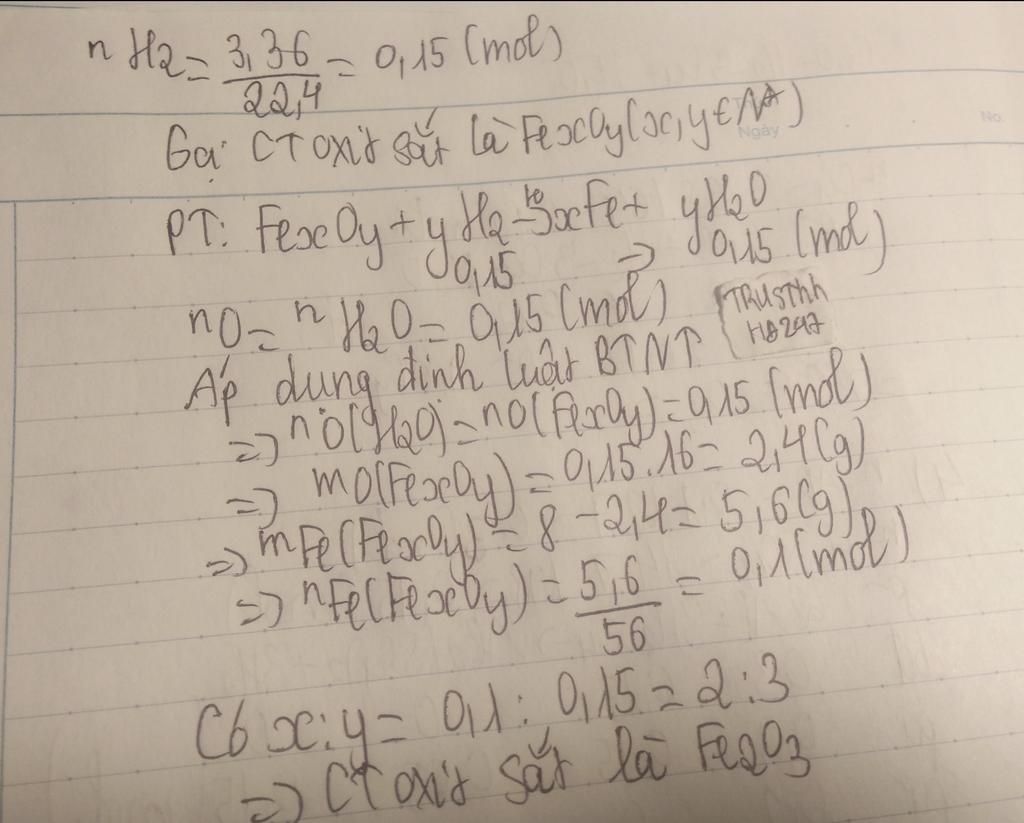 nH2 = 3,36/22,4 = 0,15 (mol)
Gọi CT oxit sắt là FexOy (x, y ∈ N*)
Ngày
No.
PT: FexOy + yH2 -to-> xFe + yH2O
0,15 => 0,15 (mol)
nO = nH2O = 0,15 (mol)
TRUSThh
H8247
Áp dung định luật BTNT
=> nO(H2O) = nO(FexOy) = 0,15 (mol)
=> mO(FexOy) = 0,15.16 = 2,4(g)
=> mFe(FexOy) = 8 - 2,4 = 5,6(g)
=> nFe(FexOy) = 5,6/56 = 0,1 (mol)
Có x:y = 0,1 : 0,15 = 2:3
=> CT oxit sắt là Fe2O3